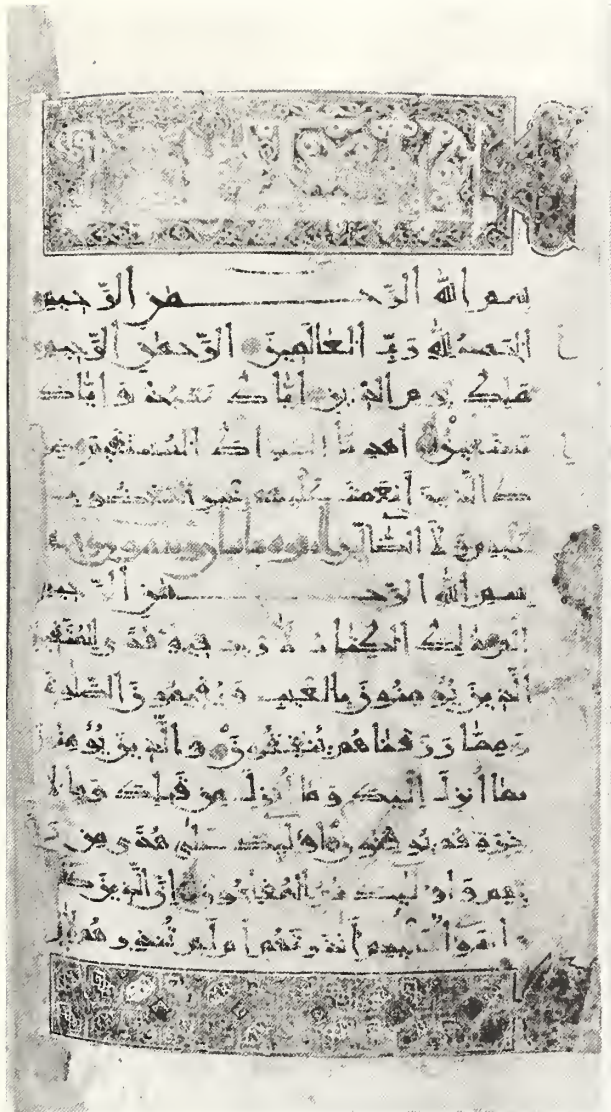 بسم الله الرحمن الرحيم
الحمد لله رب العالمين الرحمن الرحيم
ملك يوم الدين اياك نعبد و اياك
نستعين اهدنا الصراط المستقيم صر
ط الذين أنعمت عليهم غير المغضوب
عليهم و لا الضالين
بسم الله الرحمن الرحيم
الم ذلك الكتاب لا ريب فيه هدى للمتقين
الذين يؤمنون بالغيب و يقيمون الصلوة
و مما رزقناهم ينفقون و الذين يؤمنو
بما أنزل اليك و ما أنزل من قبلك و بالا
خرة هم يوقنون أولئك على هدى من ر
بهم و أولئك هم المفلحون إن الذين ك
فروا سواء عليهم أأنذرتهم أم لم تنذرهم لا